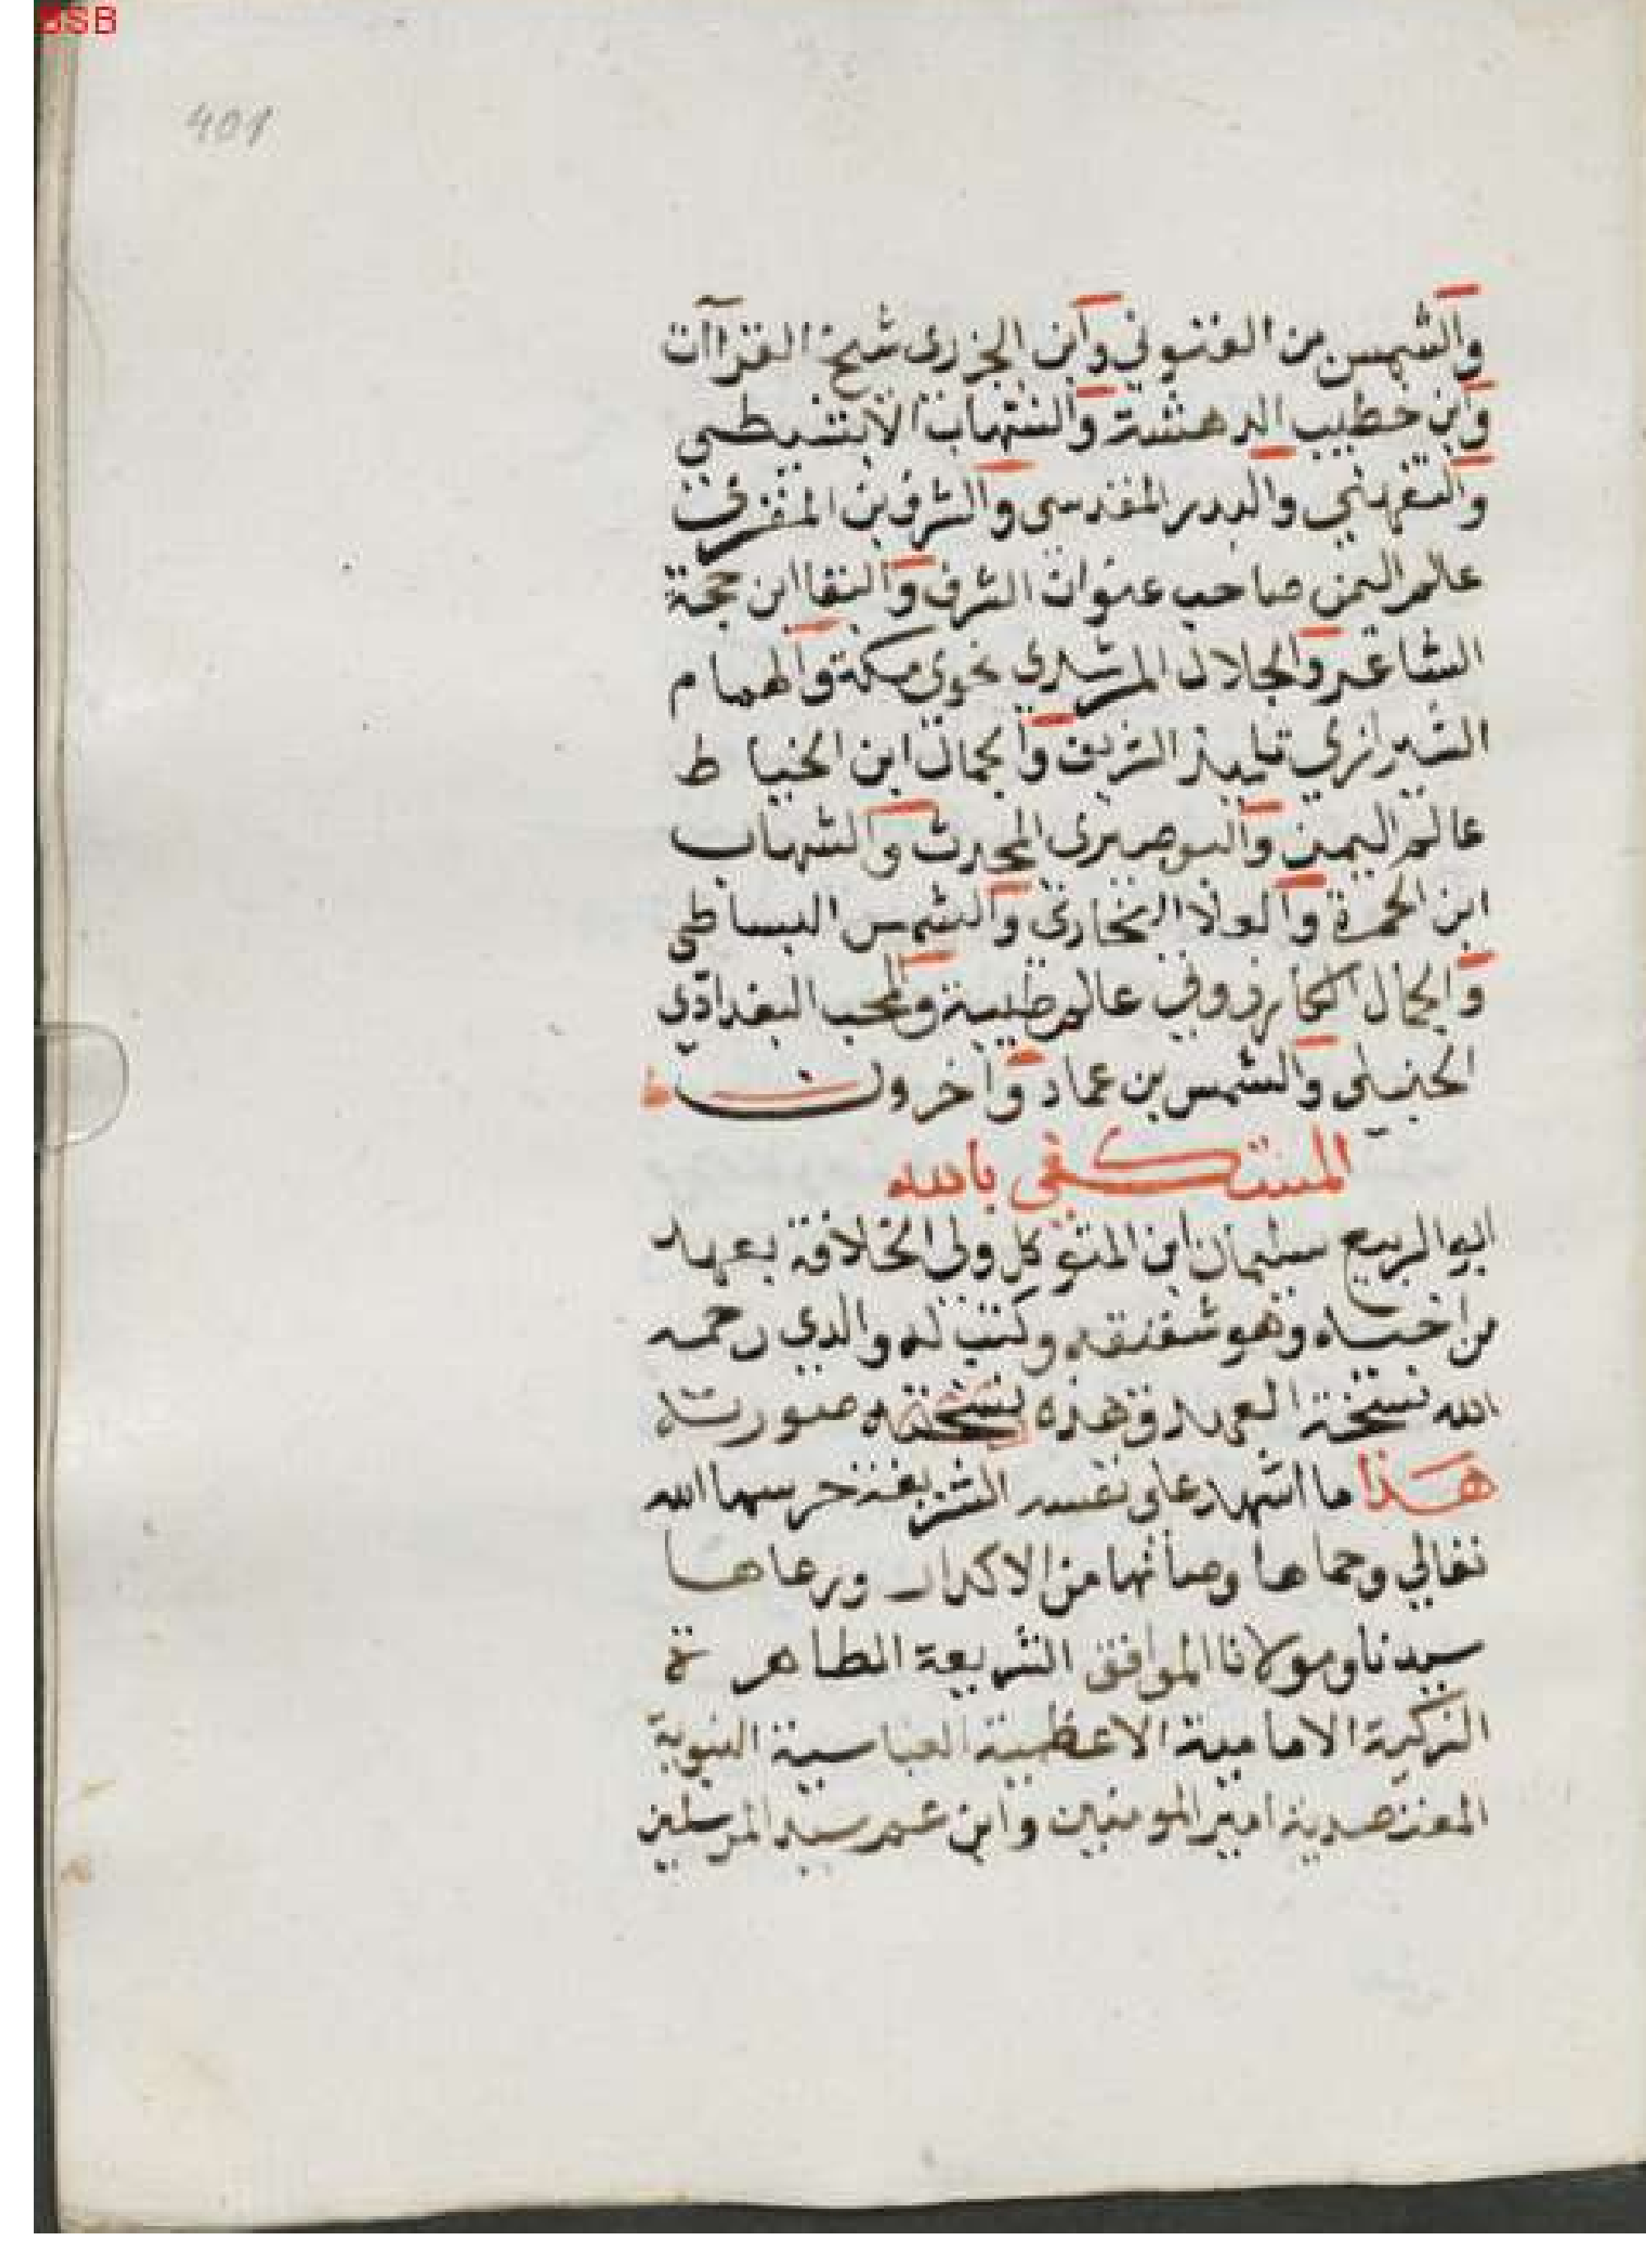 BSB
401
والشمس بن القتوني وابن الجزري شيخ القراآت
وابن خطيب الدهشة والشهاب الابشيطي
والتفهني والبدر المقدسي والشرف بن المقري
عالم اليمن صاحب عنوان الشرف والتقا ابن حجة
الشاعر والجلال المرشدي نحوي مكة والهمام
الشيرازي تلميذ الشريف والجمال ابن الخياط
عالم اليمن والبوصيري المحدث والشهاب
ابن المحمرة والعلا البخاري والشمس البساطي
والجمال الكازروني عالم طيبة والمحب البغدادي
الحنبلي والشمس بن عماد واخرون
المستكفي بالله
ابو الربيع سليمان ابن المتوكل ولي الخلافة بعهد
من اخيه وهو شقيقه وكتب له والدي رحمه
الله نسخة العهد وهذه نسخته صورته
هذا ما اشهد على نفسه الشريفة حرسها الله
تعالي وحماها وصانها من الاكدار ورعاها
سيدنا ومولانا المواقف الشريعة الطاهرة
الزكية الامامية الاعظمية العباسية النبوية
المعتضدية امير المومنين وابن عم سيد المرسلين